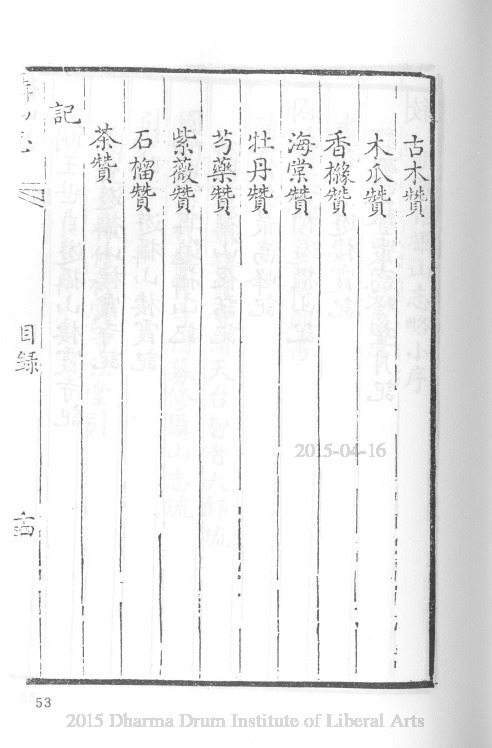 古木贊
木瓜贊
香櫞贊
海棠贊
牡丹贊
芍藥贊
紫薇贊
石榴贊
茶贊
記
目錄
53
2015-04-16
2015 Dharma Drum Institute of Liberal Arts